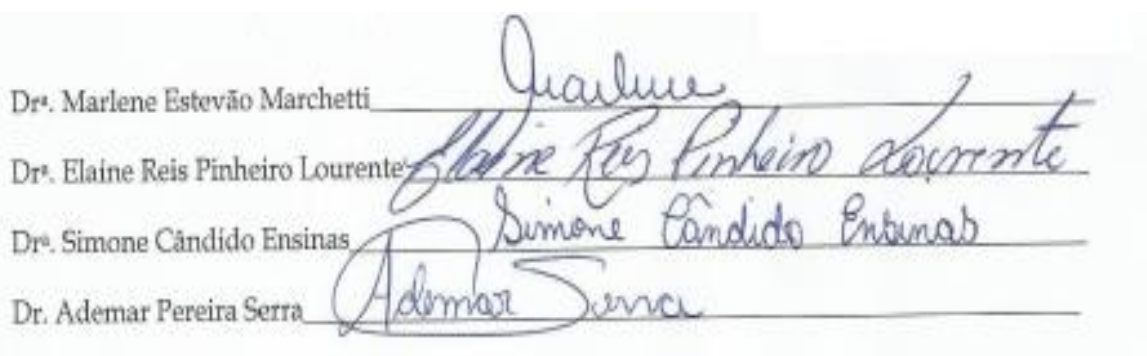 Drª. Marlene Estevão Marchetti Marlene
Drª. Elaine Reis Pinheiro Lourente Elaine Reis Pinheiro Lourente
Drª. Simone Cândido Ensinas Simone Cândido Ensinas
Dr. Ademar Pereira Serra Ademar Serra